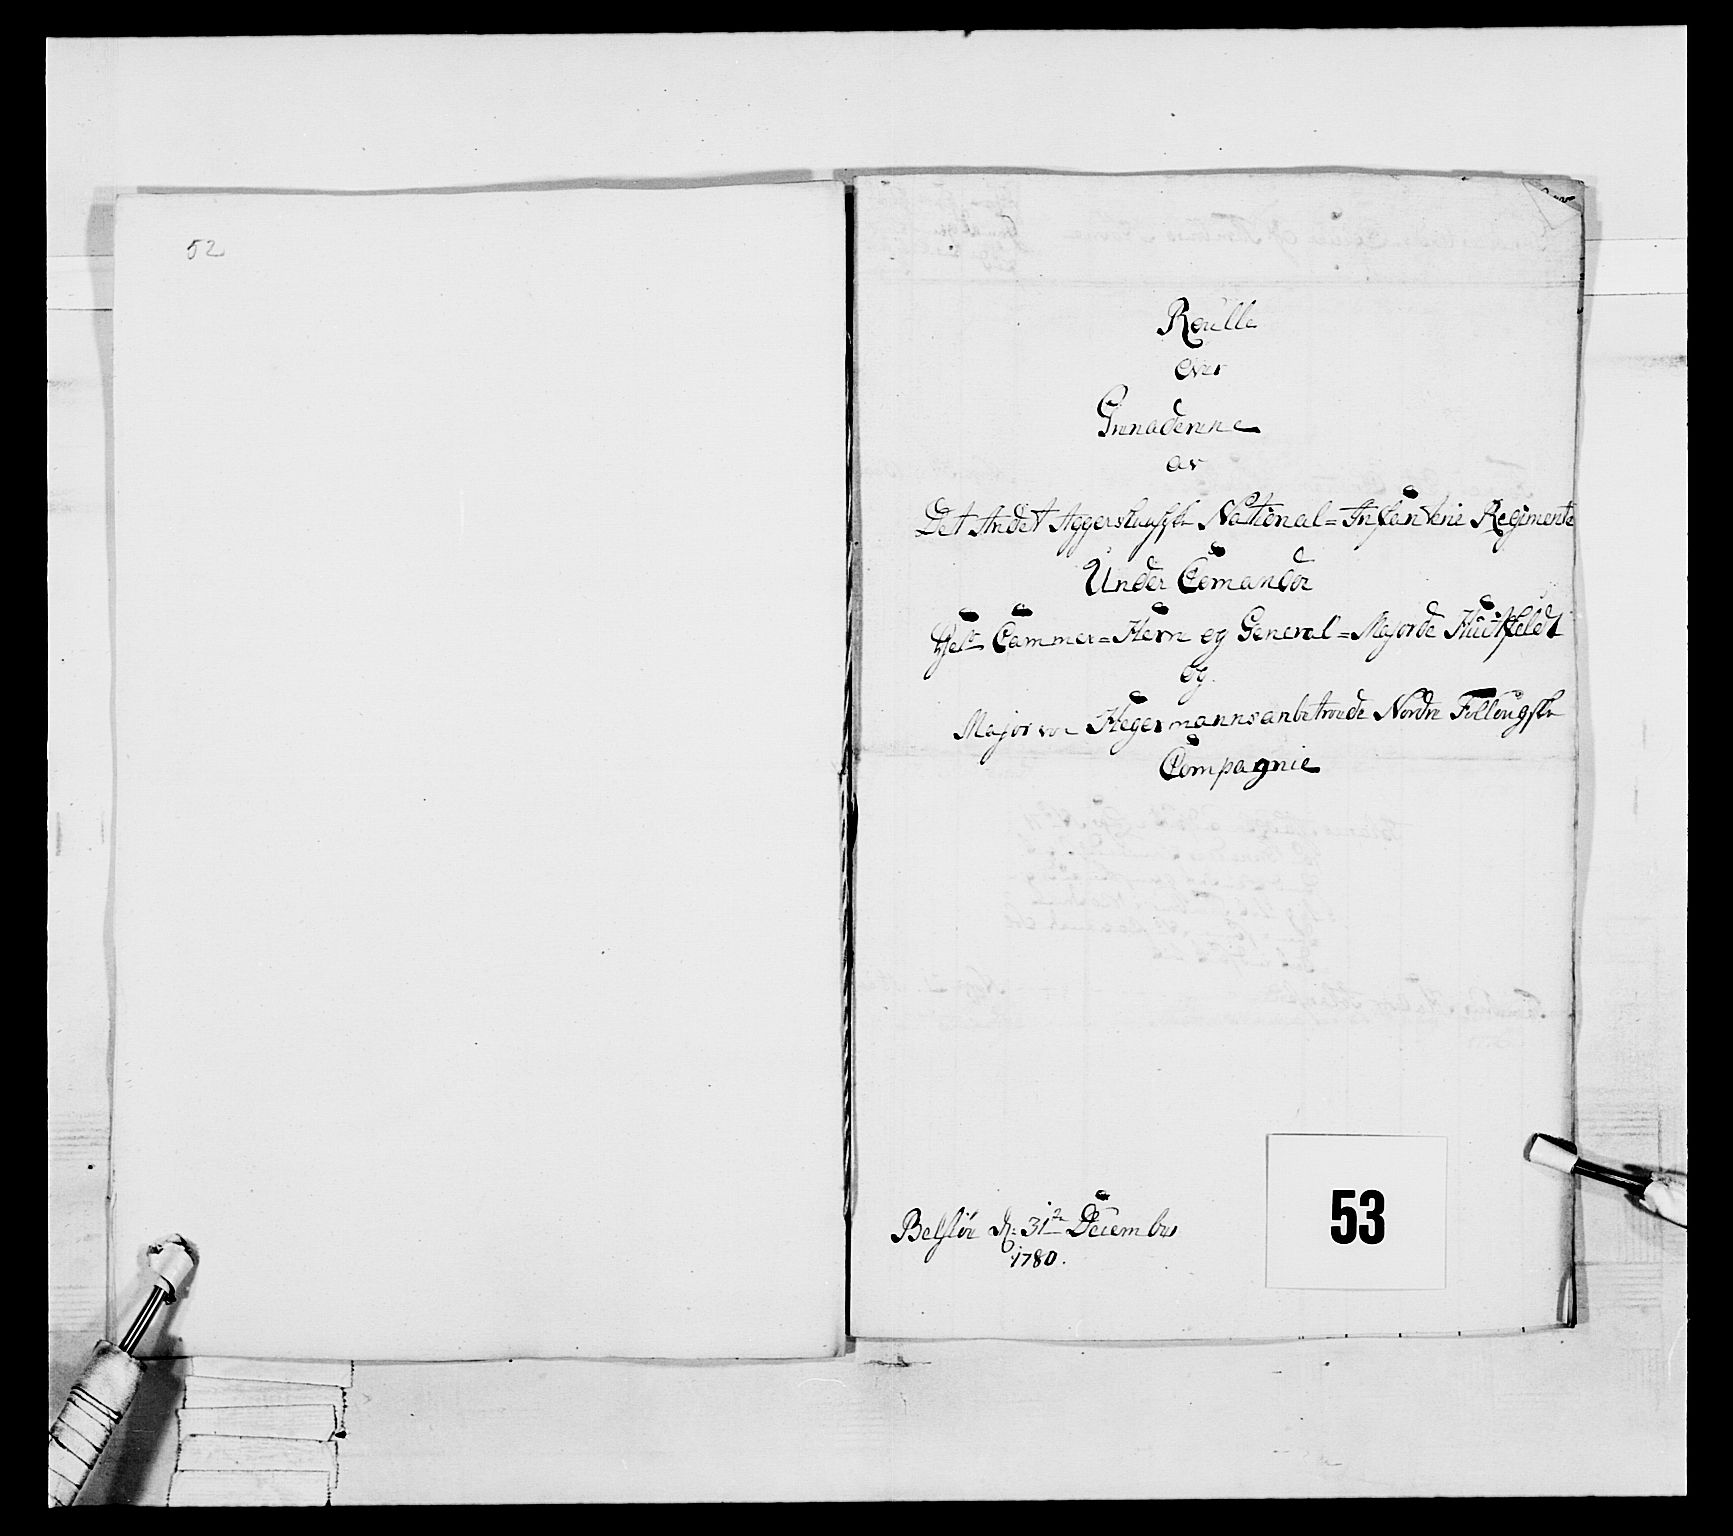 52
Roulle
over
Grenaderene
av
Det Andet Aggershuusske National=Infanterie Regimente
Under Comando
Cammer=Hern og General=Major de Huitfeldt
og
Major von Hegermanns anbetroede Nordre Follougske
Compagnie
d: 31te December
1780.
53